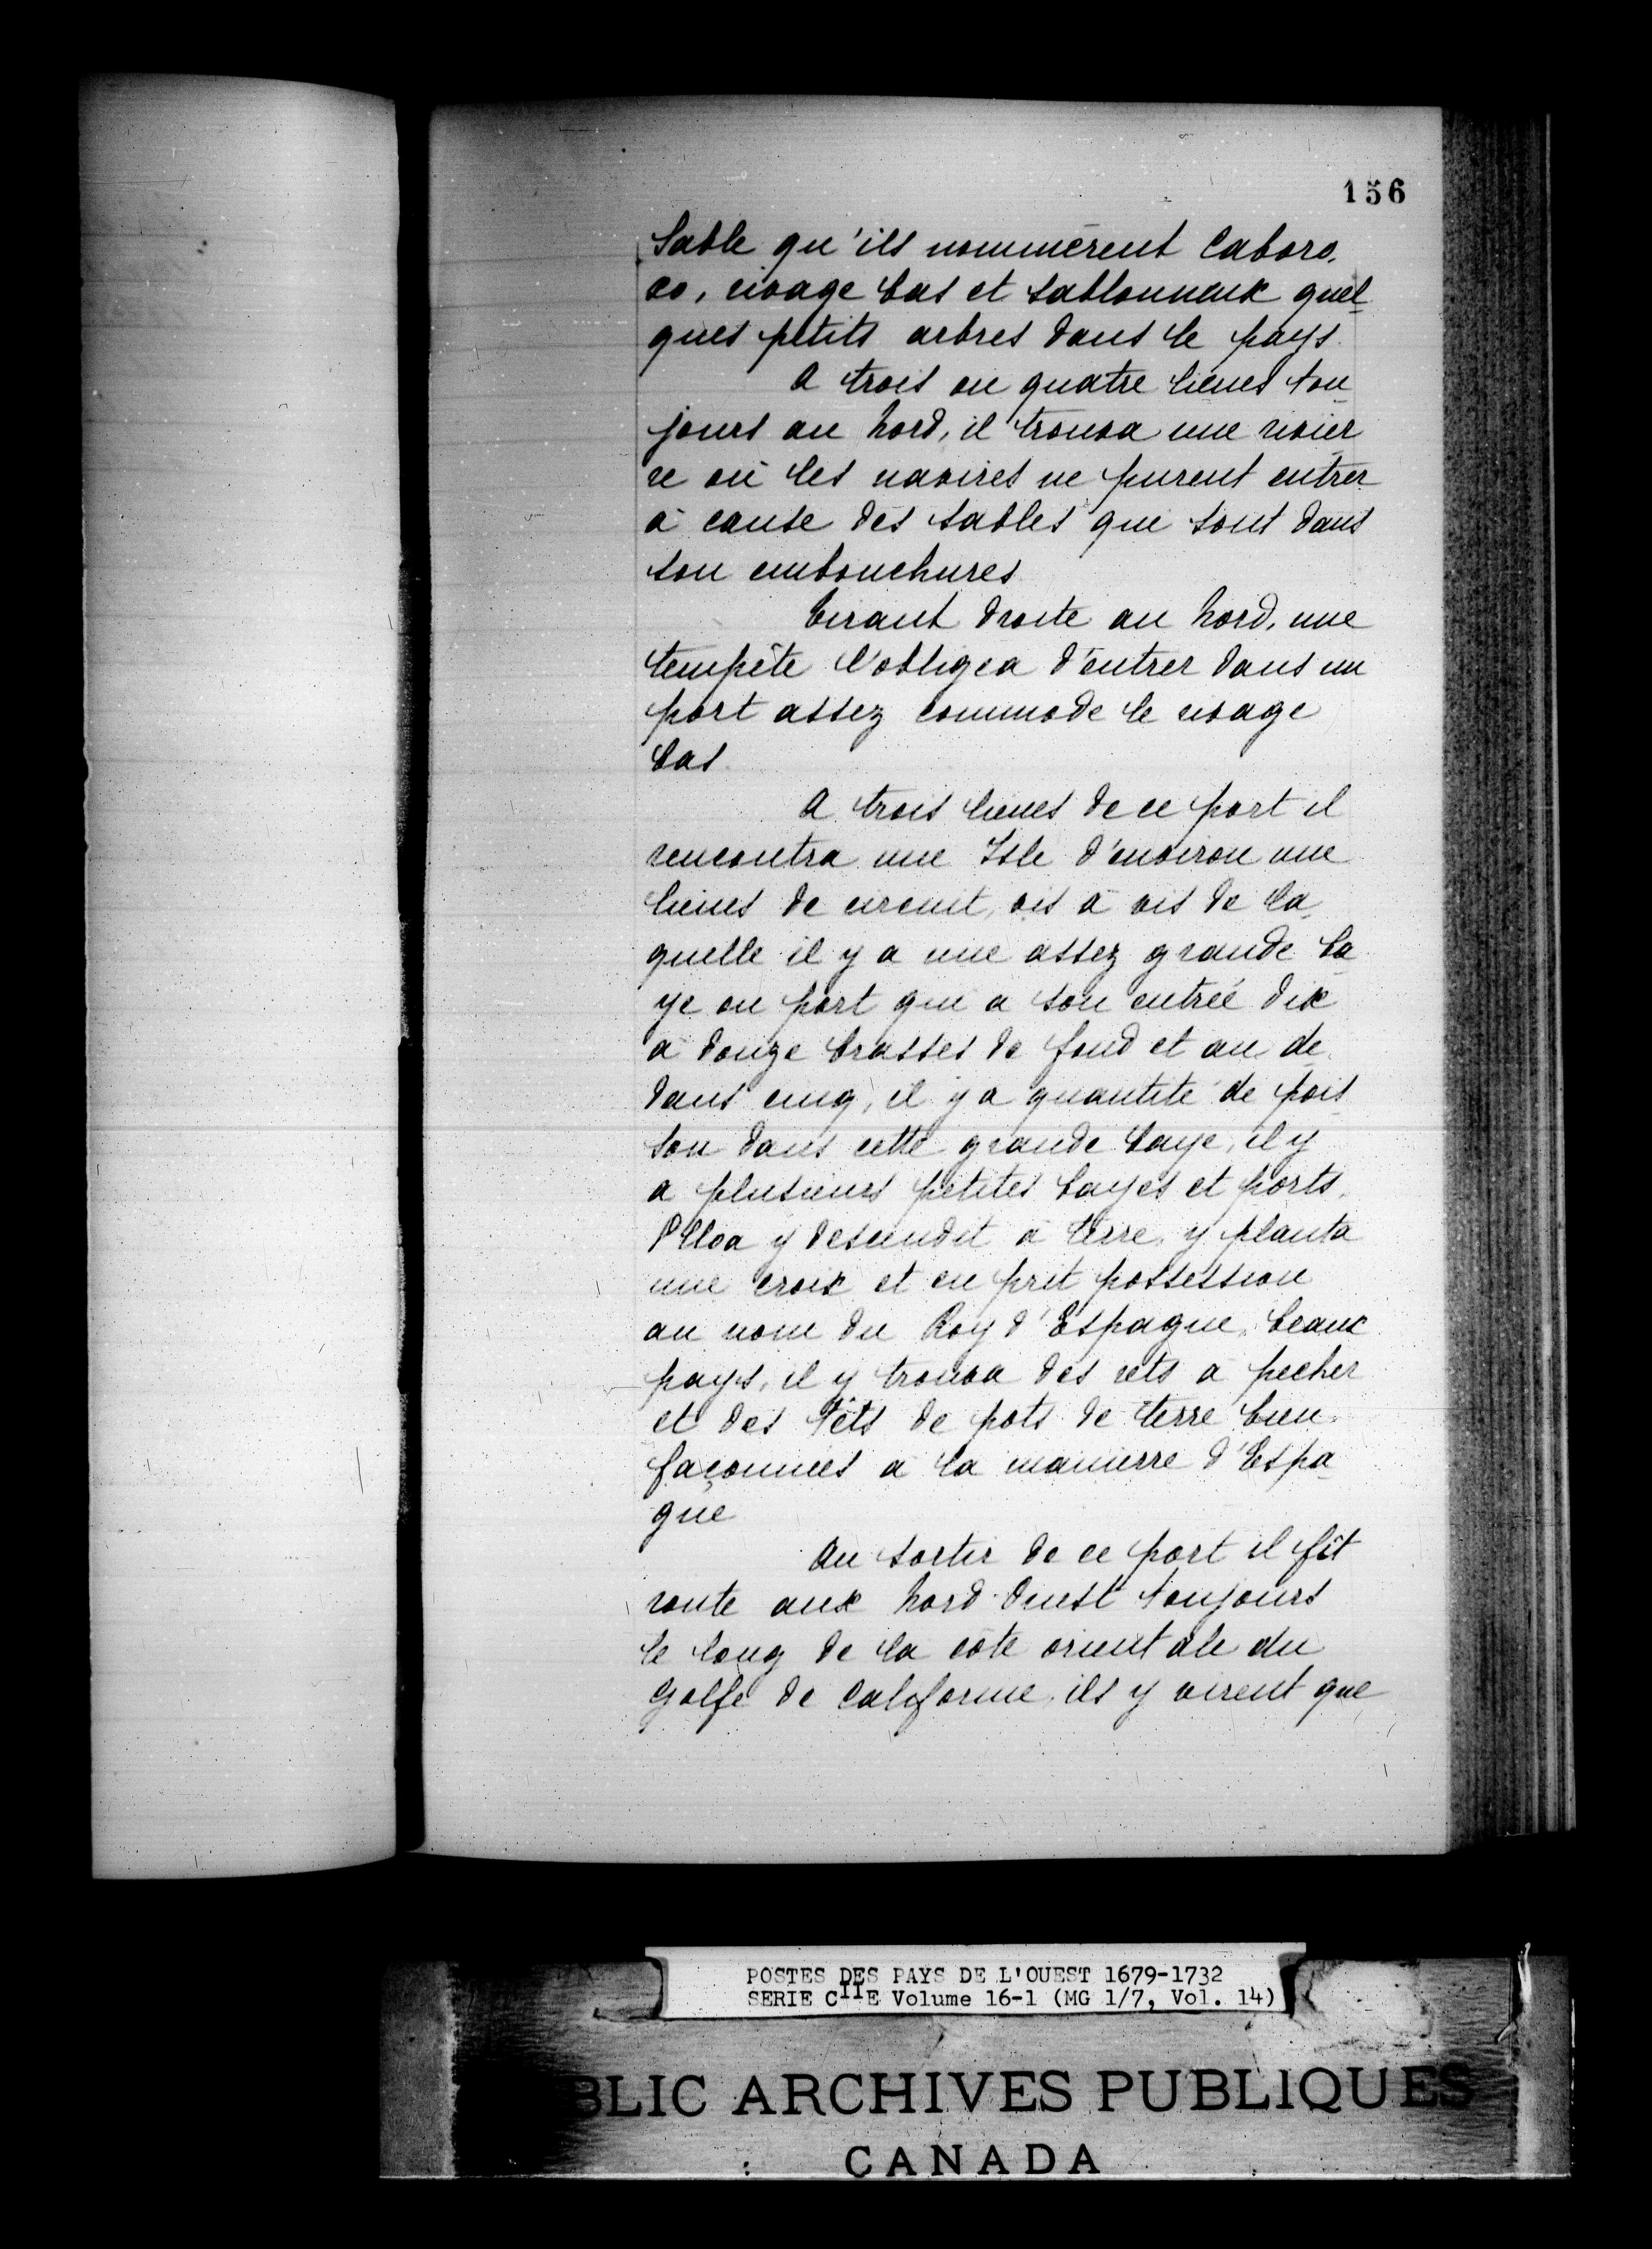 156
Sable qu'ils nommèrent Cabaro,
co, rivage bas et sablonneux quel
ques petits arbres dans le pays.
A trois ou quatre lieues tou
jours au Nord, il trouva une rivier
re où les navires ne purent entrer
à cause des sables qui sont dans
son embouchures
Tirant droite au Nord, une
tempête l'obligea d'entrer dans un
port assez commode le rivage
bas.
A trois lieues de ce port il
rencontra une Isle d'environ une
lieues de circuit, vis à vis de la
quelle il y a une assez grande ba
ye ou port qui a son entrée dix
à douze brasses de fond et au de
dans cinq, il y a quantité de pois
son dans cette grande baye, il y
a plusieurs petites bayes et ports.
Ulloa y descendit à terre, y planta
une croix et en prit possession
au nom du Roy d'Espagne, beaux
pays, il y trouva des rets à pecher
et des têts de pots de terre bien
façonnées à la manierre d'Espa
gne
Au sortir de ce port il fît
route aux Nord Ouest toujours
le long de la côte orientale du
Golfe de Californie, ils y virent que
POSTES DES PAYS DE L'OUEST 1679-1732
SERIE CIIE Volume 16-1 (MG 1/7, Vol. 14)
BLIC ARCHIVES PUBLIQUES
CANADA